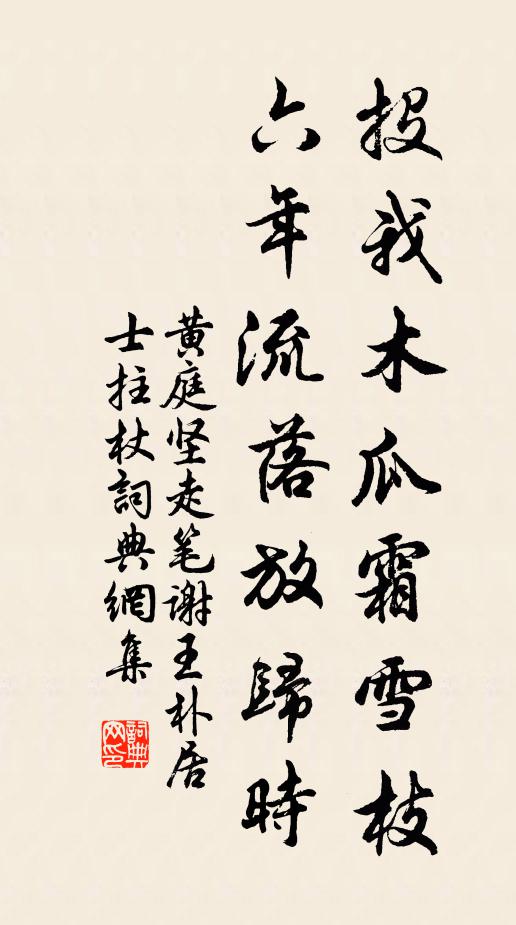 投我木瓜霜雪枝
六年流落放歸時
黃庭坚走笔謝王朴居
士拄杖詞典網集
詞典网印